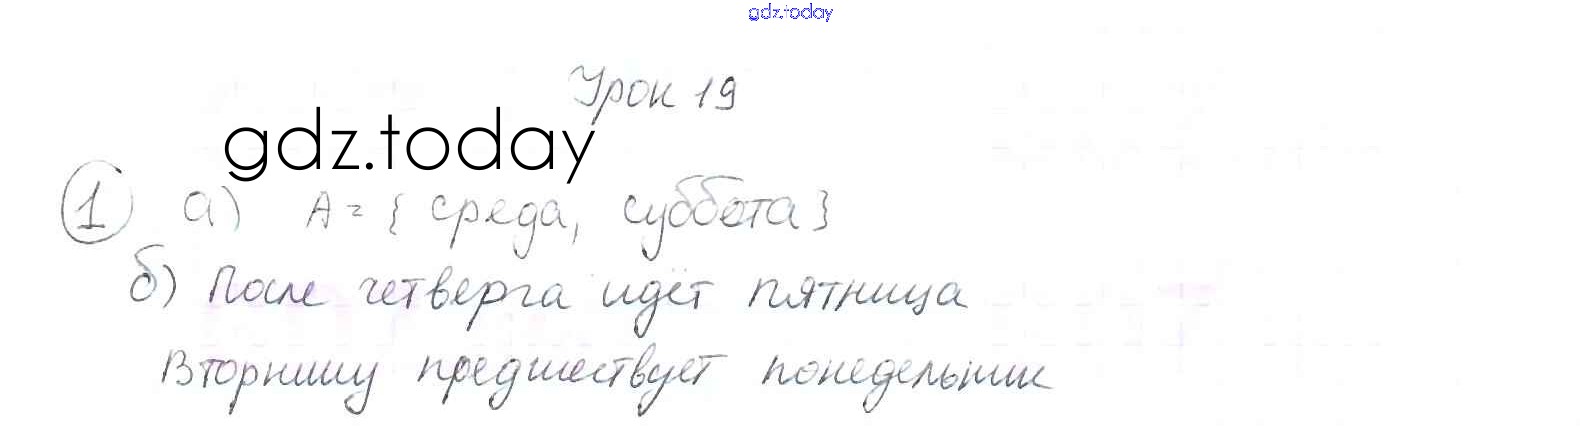 gdz.today
Урок 19
gdz.today
1 а) A = { среда, суббота}
б) После четверга идёт пятница
Вторнику предшествует понедельник